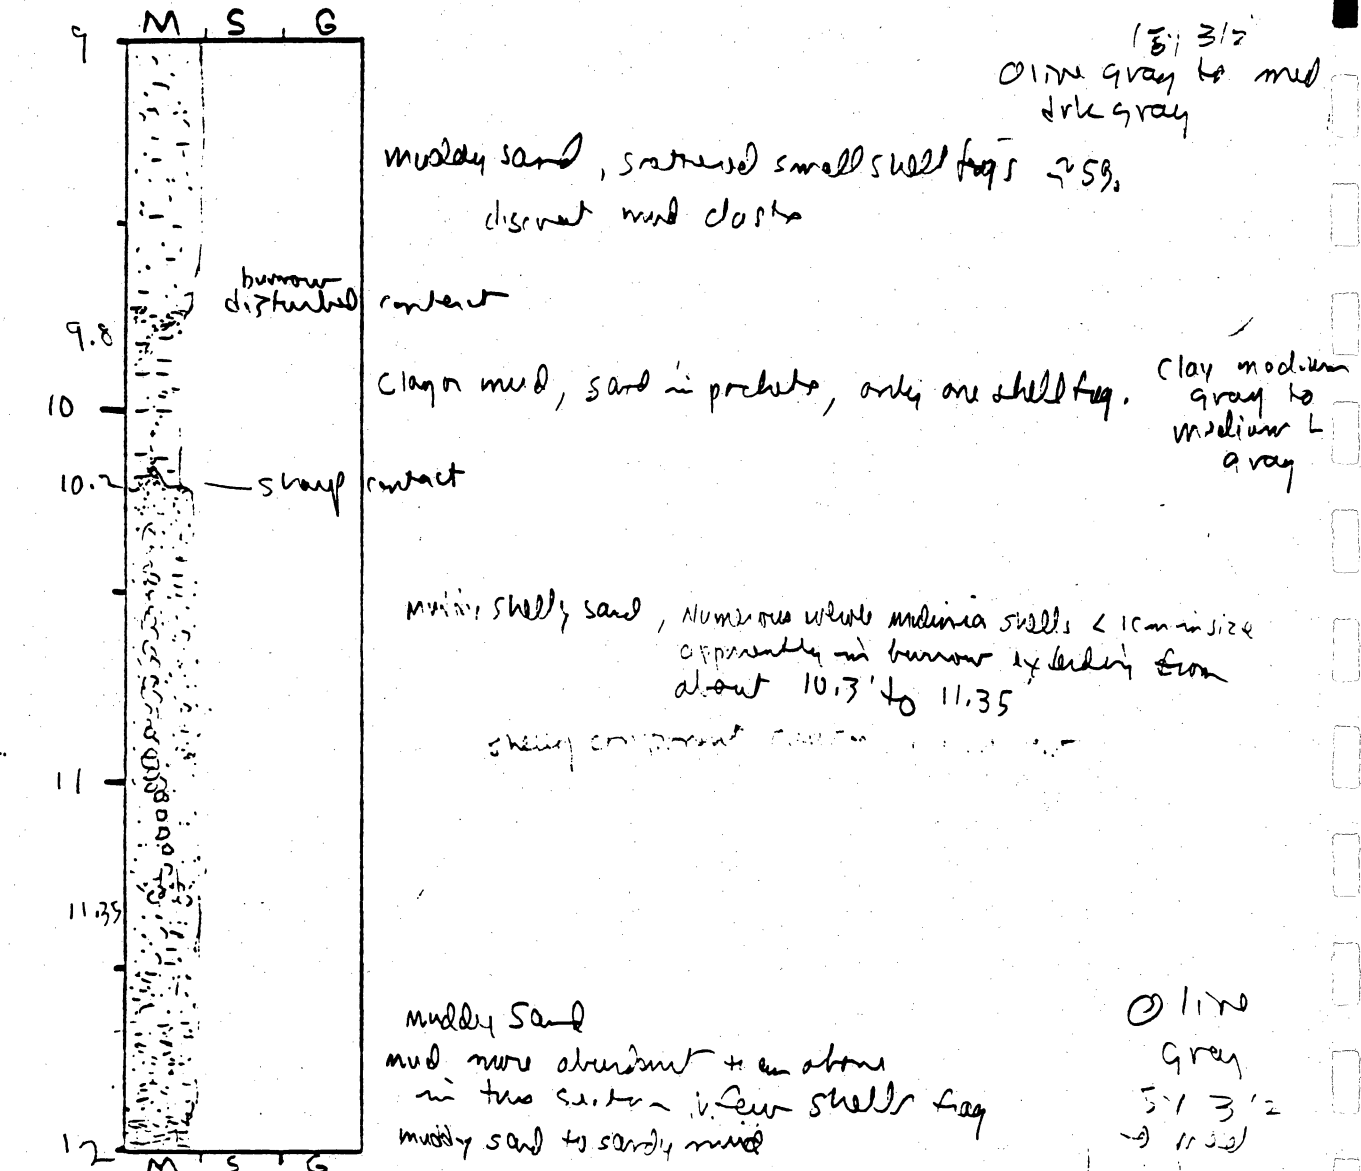 M S G
9
5y 3/2
Olive gray to med
drk gray
muddy sand, scattered small shell frags ~5%.
discreet mud clasts
burrow
disturbed contact
9.8
clay or mud, sand in pockets, only one shell frag.
clay medium
gray to
medium L
gray
10
10.2
sharp contact
shelly sand, Numerous whole mulinia shells < 1cm in size
apparently in burrow extending from
about 10.3' to 11.35'
component
11
11.35
muddy sand
mud more abundant than above
in this section, v. few shells frag
muddy sand to sandy mud
Olive
gray
5y 3/2
→ med
12
M S G